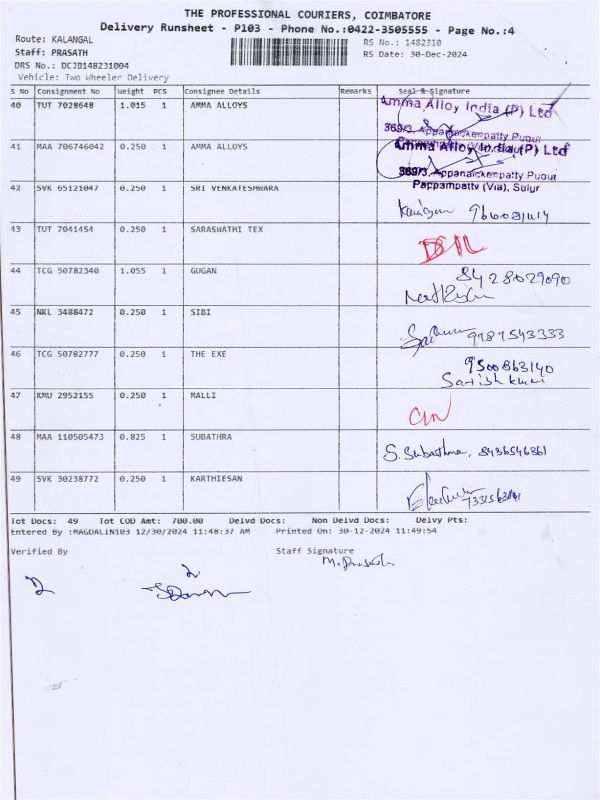 THE PROFESSIONAL COURIERS, COIMBATORE
Delivery Runsheet - P103 - Phone No.:0422-3505555 - Page No.:4
Route: KALANGAL
RS No.: 1482310
Staff: PRASATH
RS Date: 30-Dec-2024
DRS No.: DCJB148231D04
Vehicle: Two Wheeler Delivery
S No Consignment No Weight PCS Consignee Details Remarks Seal & Signature
40 TUT 7028648 1.015 1 AMMA ALLOYS
Amma Alloy India (P) Ltd
369/3, Appanaickenpatty Pudur
41 MAA 706746042 0.250 1 AMMA ALLOYS
Amma Alloy India (P) Ltd
369/3, Appanaickenpatty Pudur
Pappampatty (Via), Sulur
42 SVK 65121047 0.250 1 SRI VENKATESHWARA
43 TUT 7041454 0.250 1 SARASWATHI TEX
44 TCG 50782340 1.055 1 GUGAN
8428029090
45 NKL 3488472 0.250 1 SIBI
9787543333
46 TCG 50782777 0.250 1 THE EXE
9500863140
Satish kumar
47 KMU 2952155 0.250 1 MALLI
48 MAA 110505473 0.825 1 SUBATHRA
S. Subathra, 8436546361
49 SVK 30238772 0.250 1 KARTHIESAN
Tot Docs: 49 Tot COD Amt: 700.00 Delvd Docs: Non Delvd Docs: Delvy Pts:
Entered By :MAGDALIN103 12/30/2024 11:48:37 AM Printed On: 30-12-2024 11:49:54
Verified By Staff Signature
M. Prasath